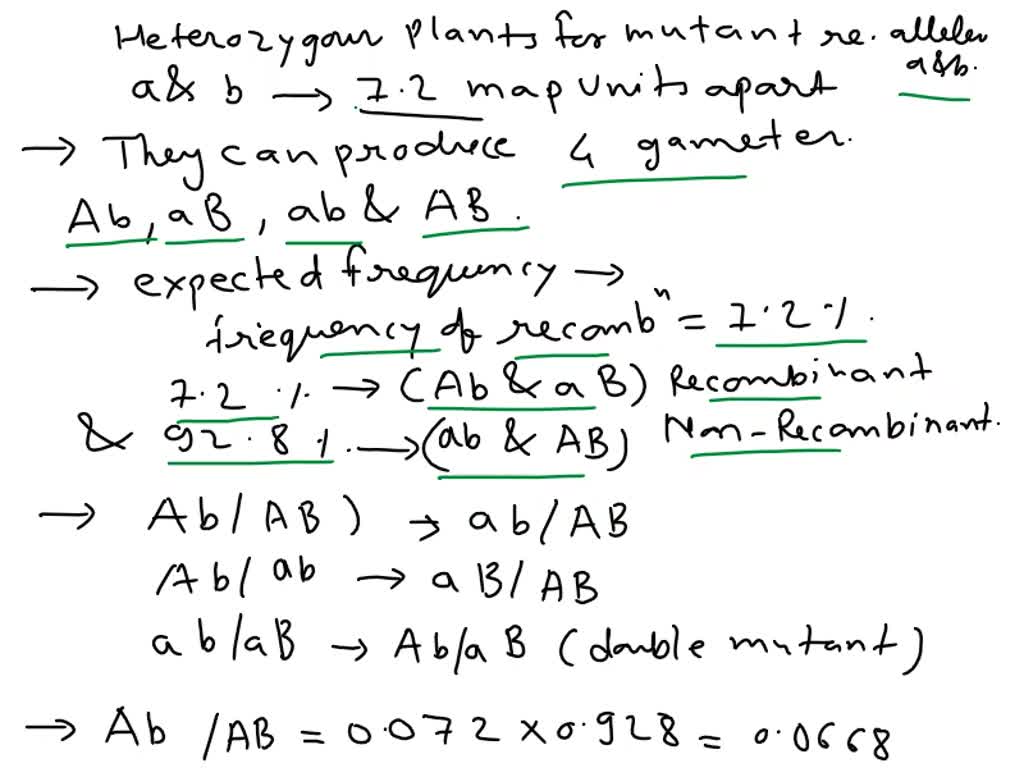 Heterozygous plants for mutant re. alleles
a&b.
a& b → 7.2 map units apart
→ They can produce 4 gametes.
Ab, aB, ab & AB.
→ expected frequency →
frequency of recombⁿ = 7.2%.
7.2 % → (Ab & aB) Recombinant
& 92.8% → (ab & AB) Non-Recombinant.
→ Ab/AB) → ab/AB
Ab/ab → aB/AB
ab/aB → Ab/aB (double mutant)
→ Ab /AB = 0.072 x 0.928 = 0.0668